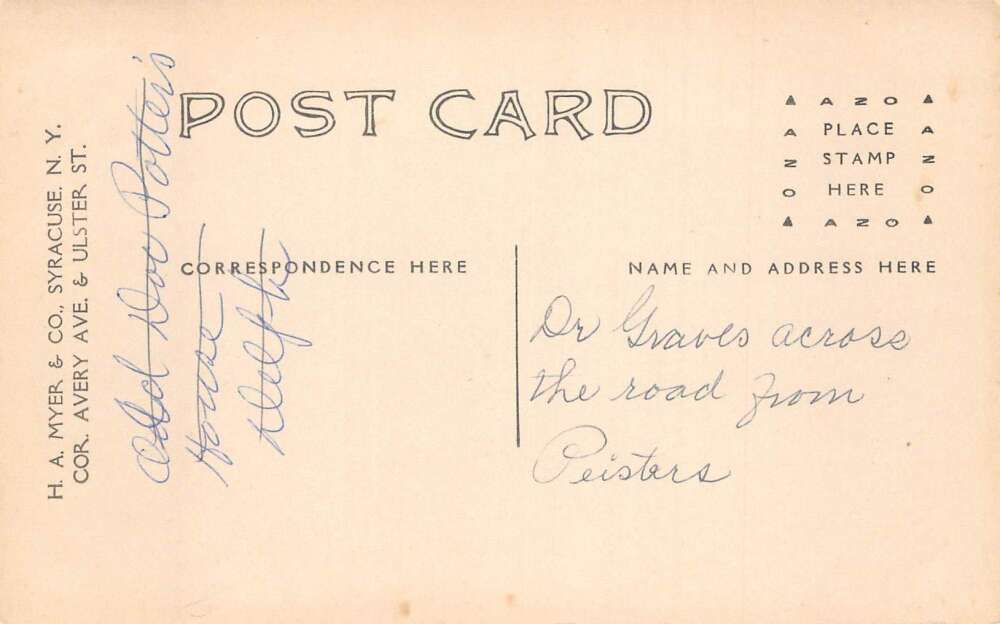 H. A. MYER & CO., SYRACUSE. N. Y.
COR. AVERY AVE. & ULSTER ST.
Old Doc Potter's
House
Delphi
POST CARD
CORRESPONDENCE HERE
AZO
PLACE
STAMP
HERE
AZO
AZO
AZO
NAME AND ADDRESS HERE
Dr Graves across
the road from
Peisters